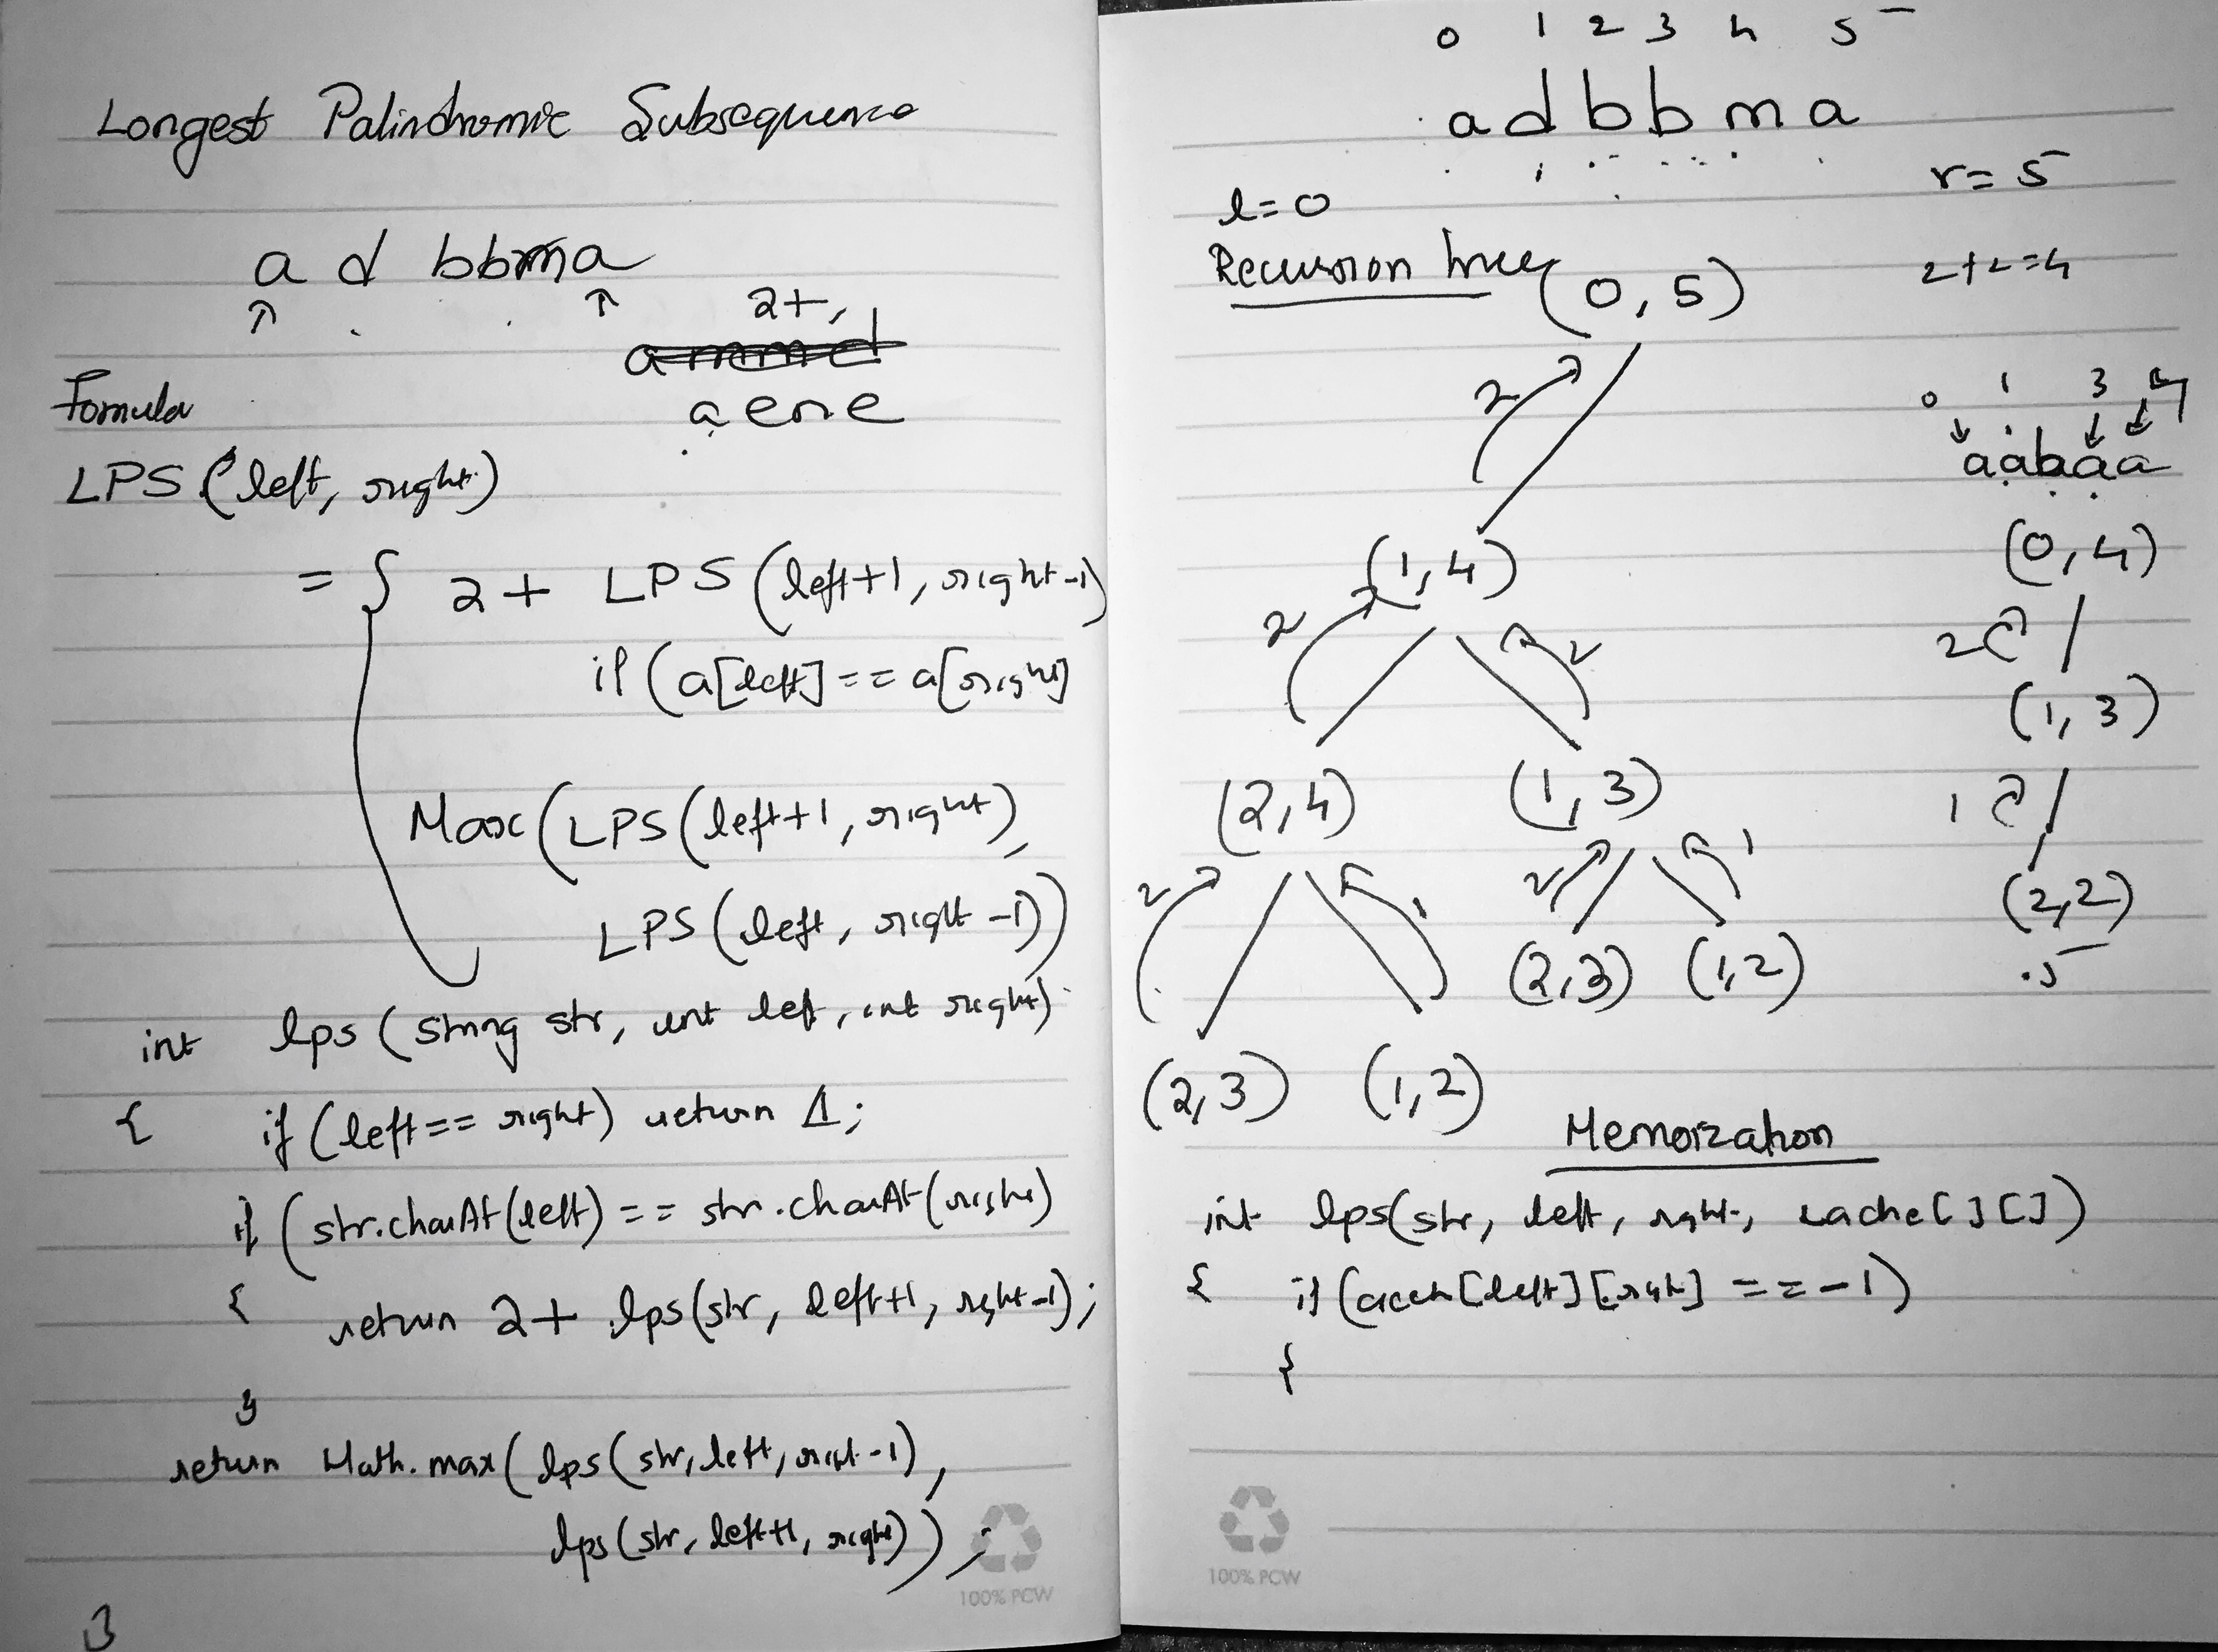 Longest Palindromic Subsequence
a d bbma
2+
aene
Formula
LPS (left, right)
= { 2 + LPS (left+1, right-1)
if (a[left] == a[right]
Max (LPS (left+1, right),
LPS (left, right -1))
int lps (string str, int left, int right)
{ if (left == right) return 1;
if (str.charAt(left) == str.charAt(right)
{ return 2+ lps(str, left+1, right-1);
}
return Math.max( lps( str, left, right-1),
lps (str, left+1, right)) ;
}
100% PCW
0 1 2 3 4 5
a d b b m a
l=0 r=5
Recursion tree (0,5) 2+2=4
2
(1,4)
2 2
(2,4) (1,3)
2 1 2 1
(2,3) (1,2)
(2,3) (1,2)
0 1 3 4
aabaa
(0,4)
2
(1,3)
1
(2,2)
5
Memoization
int lps(str, left, right, cache[][])
{ if ([left][right] == -1)
{
100% PCW